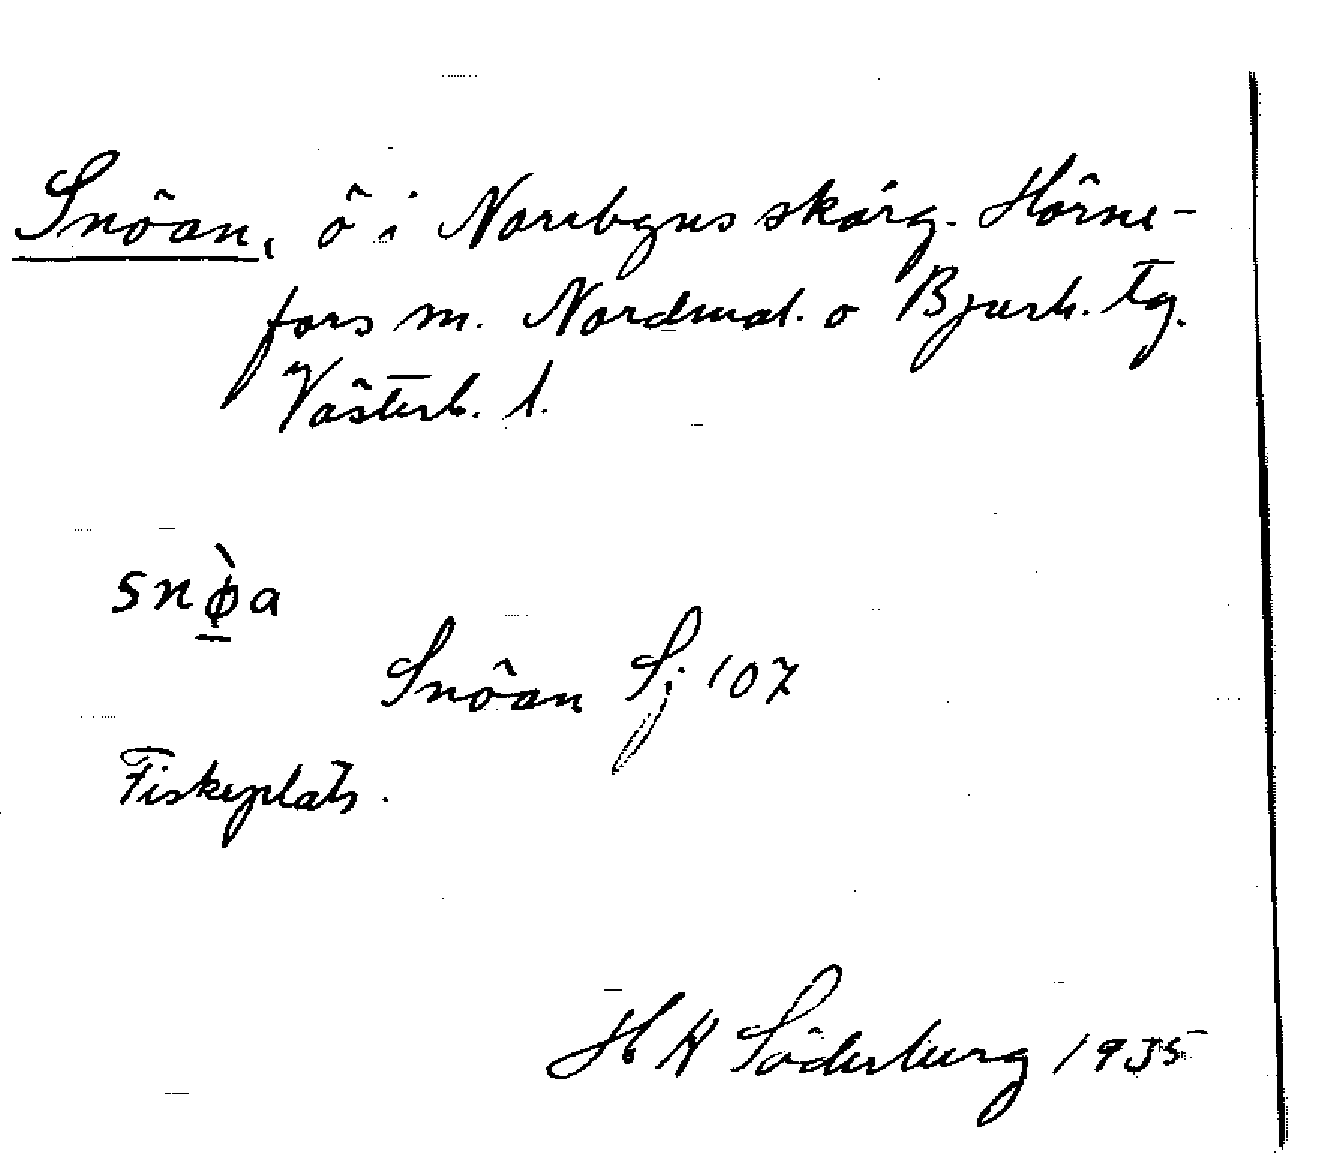 Snöan, ö i Norrbyns skärg. Hörne-
fors sn. Nordmal. o Bjurh. tg.
Västerb. l.
snø̀a
Snöan Sj 107
Fiskeplats.
H Söderberg 1935